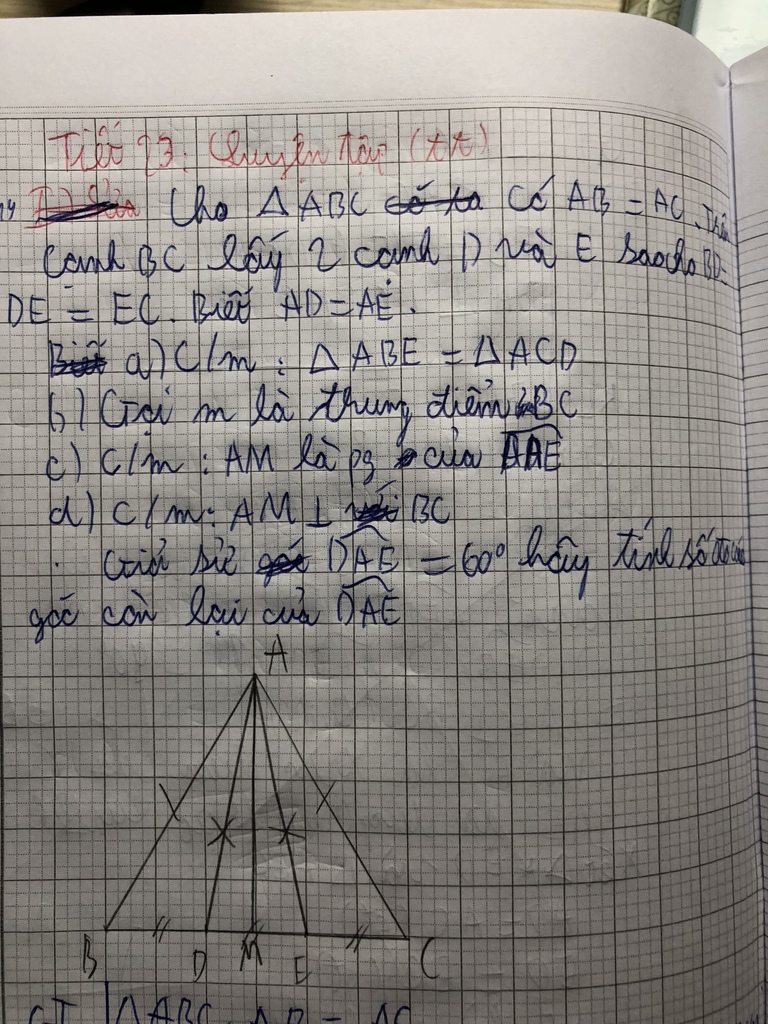 Tiết 23: Luyện tập (tt)
Cho △ABC có AB = AC. Trên
cạnh BC lấy 2 cạnh D và E sao cho BD=
DE = EC. Biết AD=AE.
a) C/m: △ABE = △ACD
b) Gọi m là trung điểm BC
c) C/m: AM là pg của DAE
d) C/m: AM ⊥ BC
. Giả sử DAE = 60° hãy tính số đo các
góc còn lại của DAE
A
B D M E C
GT △ABC, AB = AC